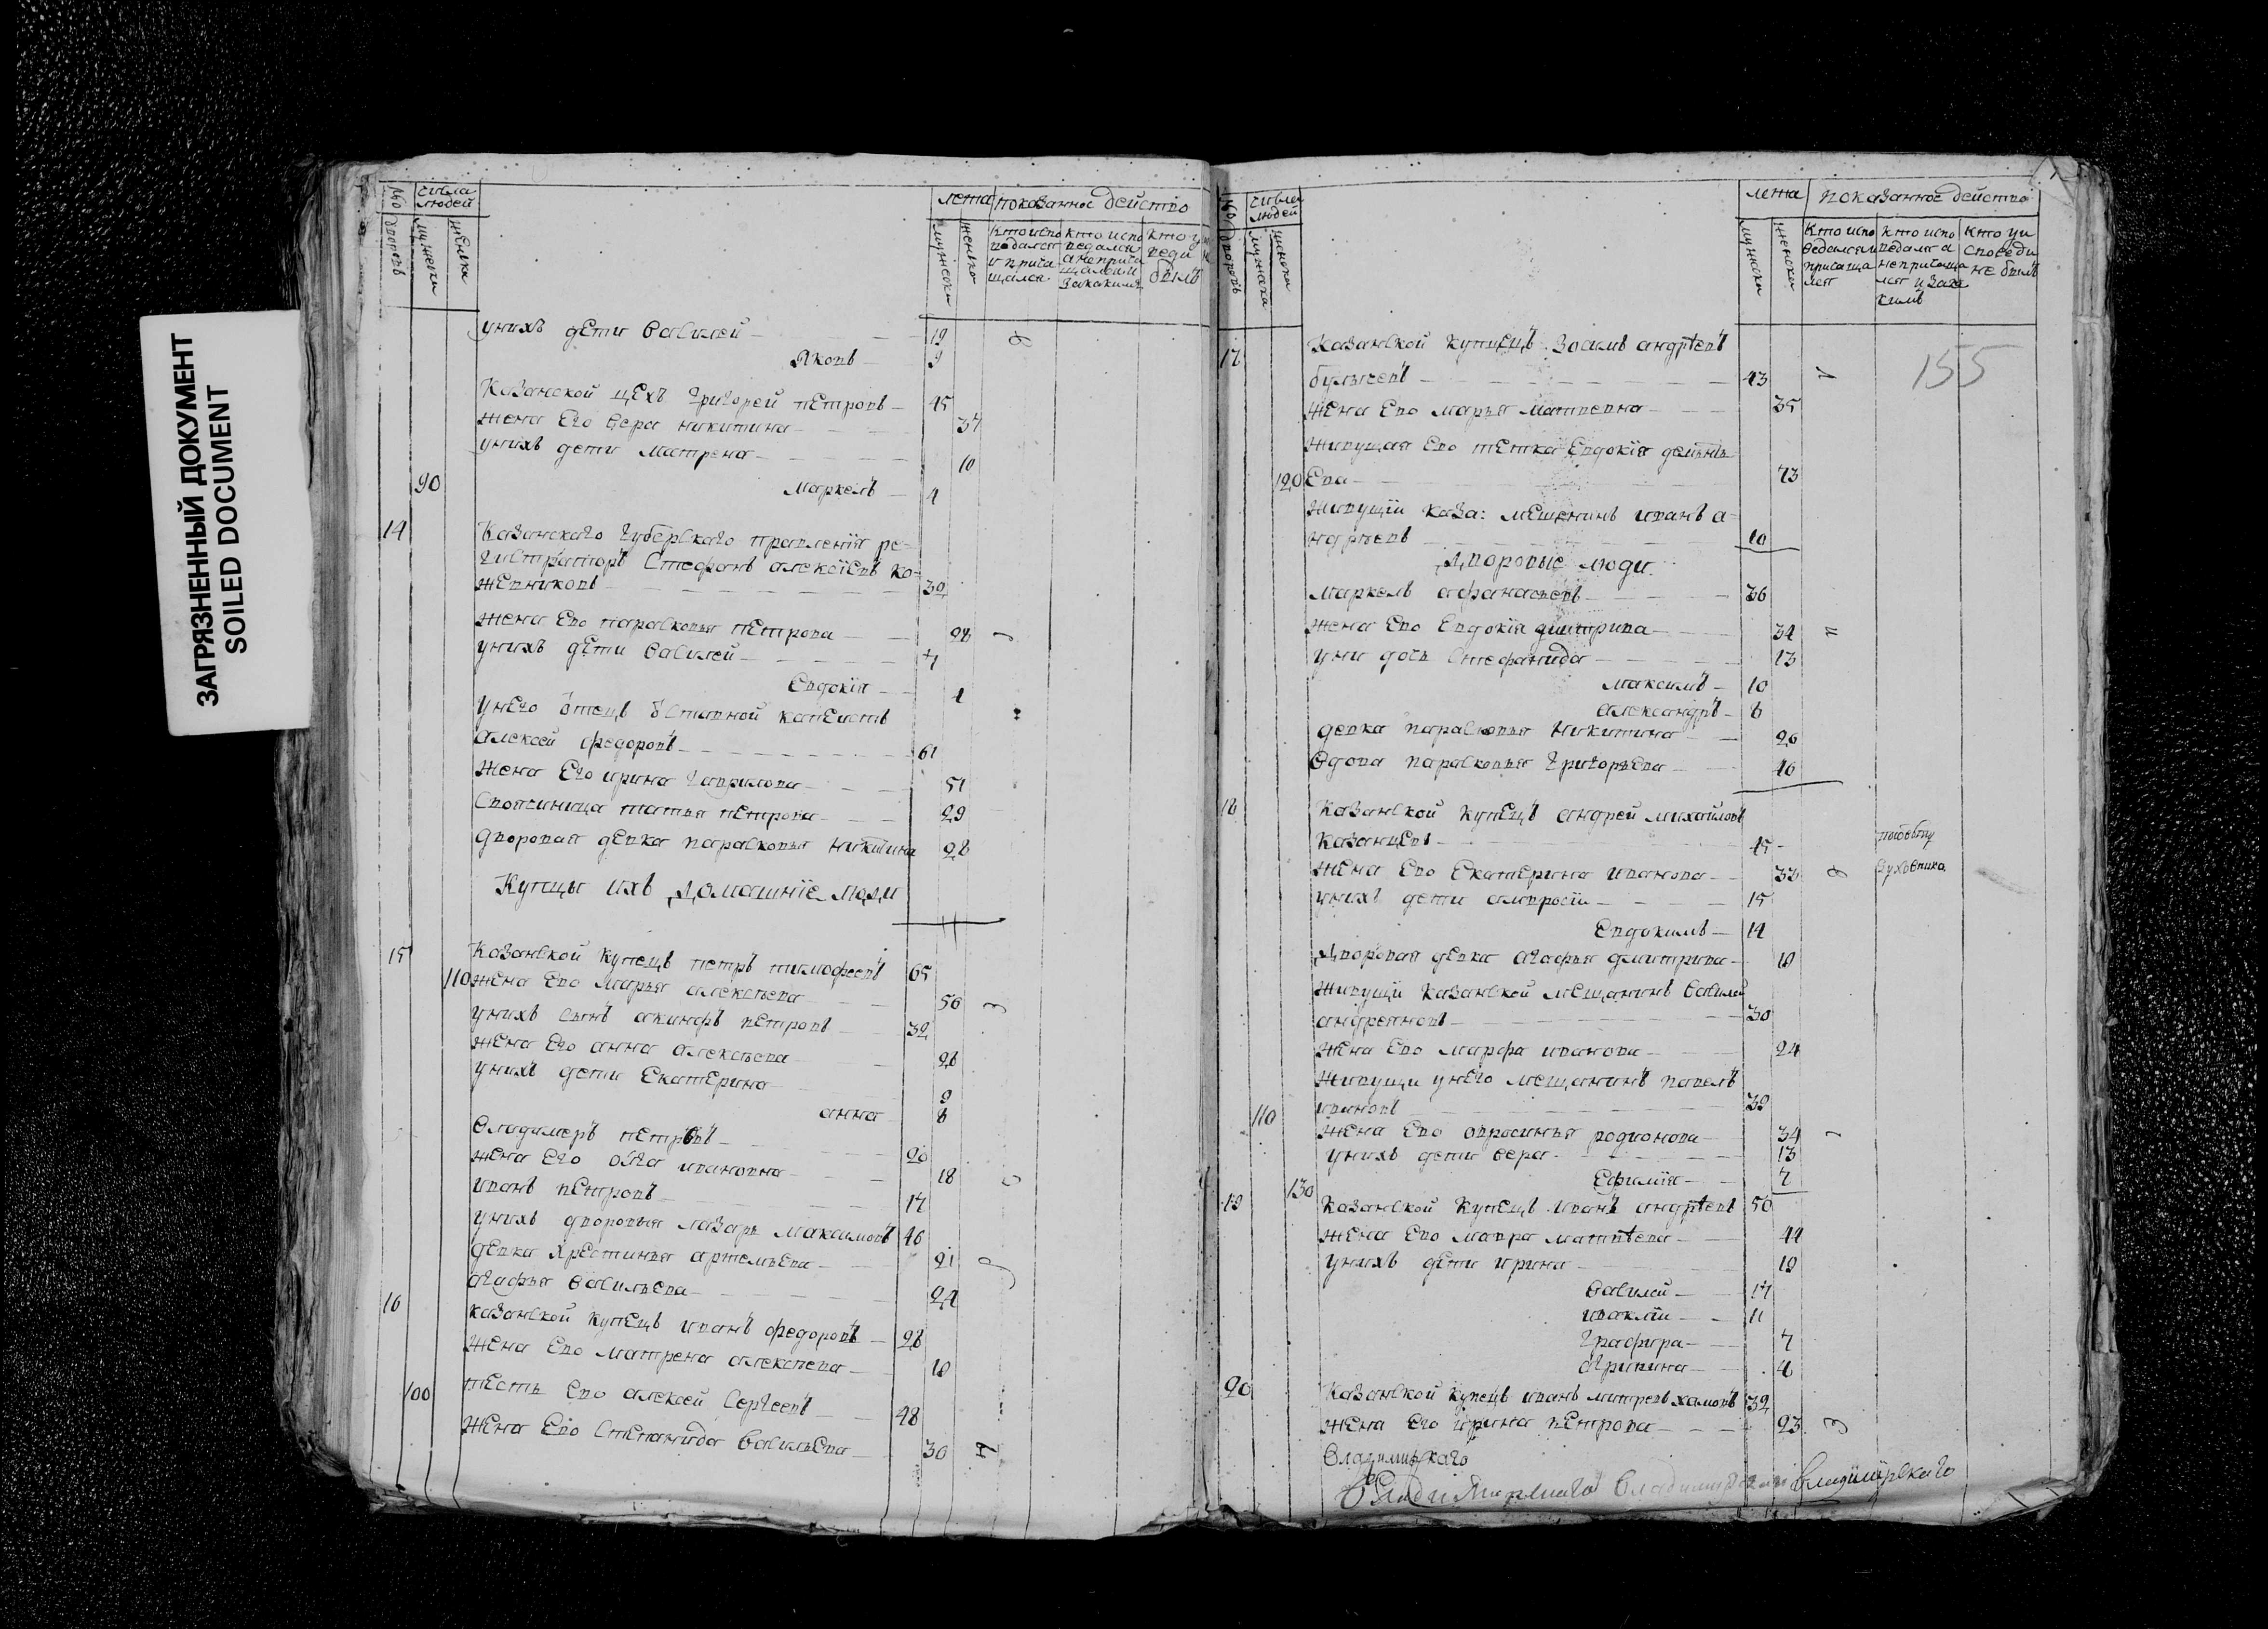 ЗАГРЯЗНЕННЫЙ ДОКУМЕНТ
SOILED DOCUMENT
No дворовъ
числа людей
мужеска
женска
лета
показанное действо
мужеска
женска
кто исповедался и причащался
кто исповедался а непричащался и за каким
былъ
унихъ дети Василей 19
Яковъ 9
Казанской цехъ григорей петровъ 45
жена Его вера никитина 37
унихъ дети Матрена 10
90 маркелъ 4
14 Казанскаго губерскаго правления ре-
гистраторъ Стефанъ алексіевъ ко-
жевниковъ 32
жена Ево парасковья петрова 28
унихъ дети Василей
Евдокія 1
унего отецъ
алексей федоровъ 61
жена Его ирина гаврилова 51
своячиница татья петрова 29
дворовая девка парасковья никитина 28
Купцы ихъ домашніе люди
15 Казанской купецъ петръ тимофеевъ 65
110 жена Ево марья алексъева 56
унихъ сынъ акинфъ петровъ 32
жена Его анна алексъева 26
унихъ дети Екатерина 9
анна 8
Владимеръ петровъ 20
жена Его ивановна 18
иванъ петровъ 17
унихъ дворовыя лазарь максимовъ 46
девка хрестинья артемьева 21
агафья васильева 24
16 казанской купецъ иванъ федоровъ 28
жена Ево матрена алексъева 18
100 тесть Ево алексей Сергеевъ 48
жена Ево Степанида васильева 30
No дворовъ
числа людей
мужеска
женска
лета
показанное действо
мужеска
женска
кто исповедался и причащался
кто исповедался а непричащался и за каким
кто у исповеди не былъ
155
17 Казанской купецъ андрѣевъ
булычевъ 43
жена Ево марья матвевна 35
живущая Ево тетка Евдокія
120 Ева 73
живущіи каза: мещенинъ иванъ а-
ндръевъ 10
дворовые люди
маркелъ афанасьевъ 36
жена Ево Евдокія дмитрива 34
уни дочь стефанида 13
максимъ 10
александръ 8
девка парасковья никитина 20
вдова парасковья григорьева 40
18 казанской купецъ андрей михайловъ
казанцевъ 45
жена Ево Екатерина иванова 33
духовника
унихъ дети амвросіи 15
Евдокимъ 14
дворовая девка агафья дмитрива 18
живущи казанской мещанинъ василей
андреяновъ 30
жена Ево марфа иванова 24
живущи унего мещанинъ павелъ
110 ивановъ 39
жена Ево родионова 34
унихъ дети вера 13
Ефимія 7
130
19 казанской купецъ иванъ андрѣевъ 50
жена Ево мавра матвѣева 44
унихъ дети ирина 19
василей 17
иваклїи 11
графира 7
агрипина 4
20 казанской купецъ иванъ хамовъ 32
жена Его ирина петрова 23
Владимирскаго
Владимирскаго Владимирскаго